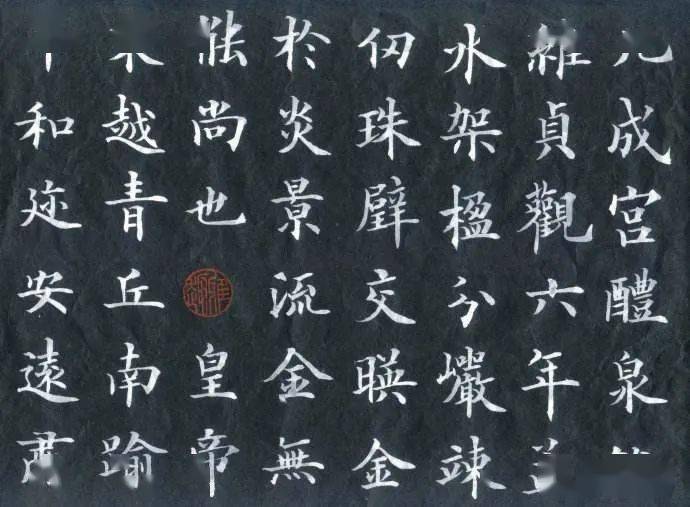 九成宮醴泉
維貞觀六年
水架楹分巖竦
仞珠璧交暎金
於炎景流金無
䏻尚也皇帝
越青丘南踰
和迩安遠